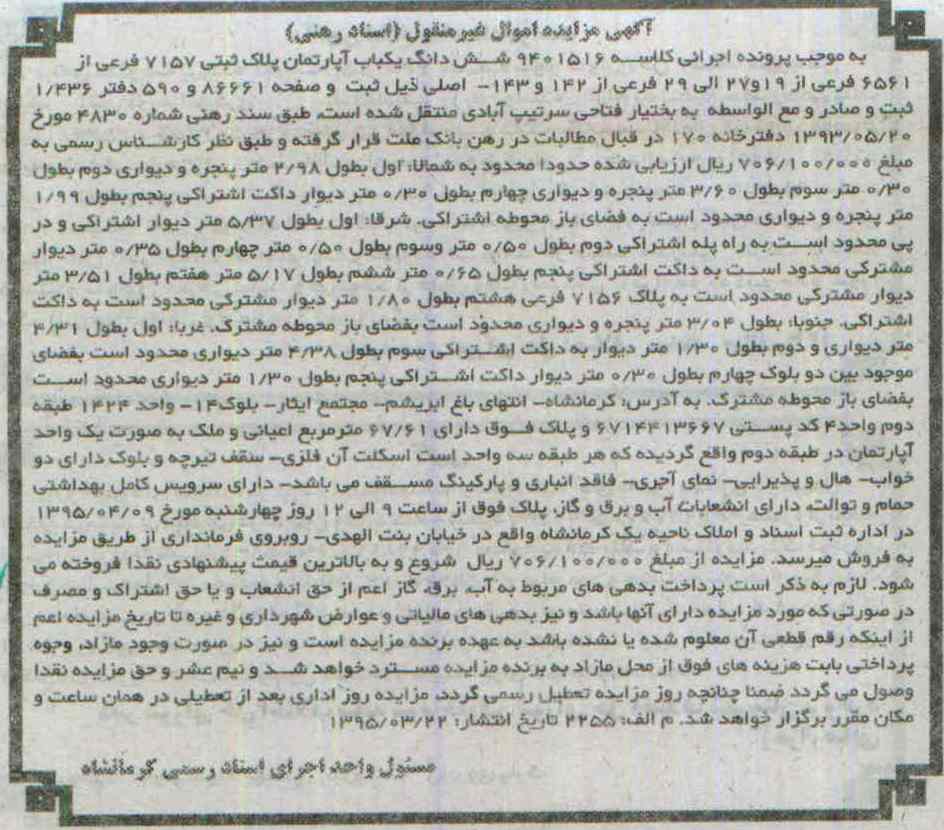 آگهی مزایده اموال غیر منقول (اسناد رهنی)
به موجب پرونده اجرائی کلاسه ۹۴۰۱۵۱۶ شش دانگ یکباب آپارتمان پلاک ثبتی ۷۱۵۷ فرعی از
۶۵۶۱ فرعی از ۱۹و۲۷ الی ۲۹ فرعی از ۱۴۲ و ۱۴۳- اصلی ذیل ثبت و صفحه ۸۶۶۶۱ و ۵۹۰ دفتر ۱/۴۳۶
ثبت و صادر و مع الواسطه به بختیار فتاحی سرتیپ آبادی منتقل شده است، طبق سند رهنی شماره ۴۸۳۰ مورخ
۱۳۹۳/۰۵/۲۰ دفترخانه ۱۷۰ در قبال مطالبات در رهن بانک ملت قرار گرفته و طبق نظر کارشناس رسمی به
مبلغ ۷۰۶/۱۰۰/۰۰۰ ریال ارزیابی شده حدودا محدود به شمالا: اول بطول ۲/۹۸ متر پنجره و دیواری دوم بطول
۰/۳۰ متر سوم بطول ۳/۶۰ متر پنجره و دیواری چهارم بطول ۰/۳۰ متر دیوار داکت اشتراکی پنجم بطول ۱/۹۹
متر پنجره و دیواری محدود است به فضای باز محوطه اشتراکی. شرقا: اول بطول ۵/۳۷ متر دیوار اشتراکی و در
پی محدود است به راه پله اشتراکی دوم بطول ۰/۵۰ متر وسوم بطول ۰/۵۰ متر چهارم بطول ۰/۳۵ متر دیوار
مشترکی محدود است به داکت اشتراکی پنجم بطول ۰/۶۵ متر ششم بطول ۵/۱۷ متر هفتم بطول ۳/۵۱ متر
دیوار مشترکی محدود است به پلاک ۷۱۵۶ فرعی هشتم بطول ۱/۸۰ متر دیوار مشترکی محدود است به داکت
اشتراکی. جنوبا: بطول ۳/۰۴ متر پنجره و دیواری محدود است بفضای باز محوطه مشترک. غربا: اول بطول ۴/۳۱
متر دیواری و دوم بطول ۱/۳۰ متر دیوار به داکت اشتراکی سوم بطول ۴/۳۸ متر دیواری محدود است بفضای
موجود بین دو بلوک چهارم بطول ۰/۳۰ متر دیوار داکت اشتراکی پنجم بطول ۱/۳۰ متر دیواری محدود است
بفضای باز محوطه مشترک. به آدرس: کرمانشاه- انتهای باغ ابریشم- مجتمع ایثار- بلوک۱۴- واحد ۱۴۲۴ طبقه
دوم واحد۴ کد پستی ۶۷۱۴۴۱۳۶۶۷ و پلاک فوق دارای ۶۷/۶۱ مترمربع اعیانی و ملک به صورت یک واحد
آپارتمان در طبقه دوم واقع گردیده که هر طبقه سه واحد است اسکلت آن فلزی- سقف تیرچه و بلوک دارای دو
خواب- هال و پذیرایی- نمای آجری- فاقد انباری و پارکینگ مسقف می باشد- دارای سرویس کامل بهداشتی
حمام و توالت، دارای انشعابات آب و برق و گاز. پلاک فوق از ساعت ۹ الی ۱۲ روز چهارشنبه مورخ ۱۳۹۵/۰۴/۰۹
در اداره ثبت اسناد و املاک ناحیه یک کرمانشاه واقع در خیابان بنت الهدی- روبروی فرمانداری از طریق مزایده
به فروش میرسد. مزایده از مبلغ ۷۰۶/۱۰۰/۰۰۰ ریال شروع و به بالاترین قیمت پیشنهادی نقدا فروخته می
شود. لازم به ذکر است پرداخت بدهی های مربوط به آب، برق، گاز اعم از حق انشعاب و یا حق اشتراک و مصرف
در صورتی که مورد مزایده دارای آنها باشد و نیز بدهی های مالیاتی و عوارض شهرداری و غیره تا تاریخ مزایده اعم
از اینکه رقم قطعی آن معلوم شده یا نشده باشد به عهده برنده مزایده است و نیز در صورت وجود مازاد، وجوه
پرداختی بابت هزینه های فوق از محل مازاد به برنده مزایده مسترد خواهد شد و نیم عشر و حق مزایده نقدا
وصول می گردد ضمنا چنانچه روز مزایده تعطیل رسمی گردد، مزایده روز اداری بعد از تعطیلی در همان ساعت و
مکان مقرر برگزار خواهد شد. م الف: ۲۲۵۵ تاریخ انتشار: ۱۳۹۵/۰۳/۲۲
مسئول واحد اجرای اسناد رسمی کرمانشاه